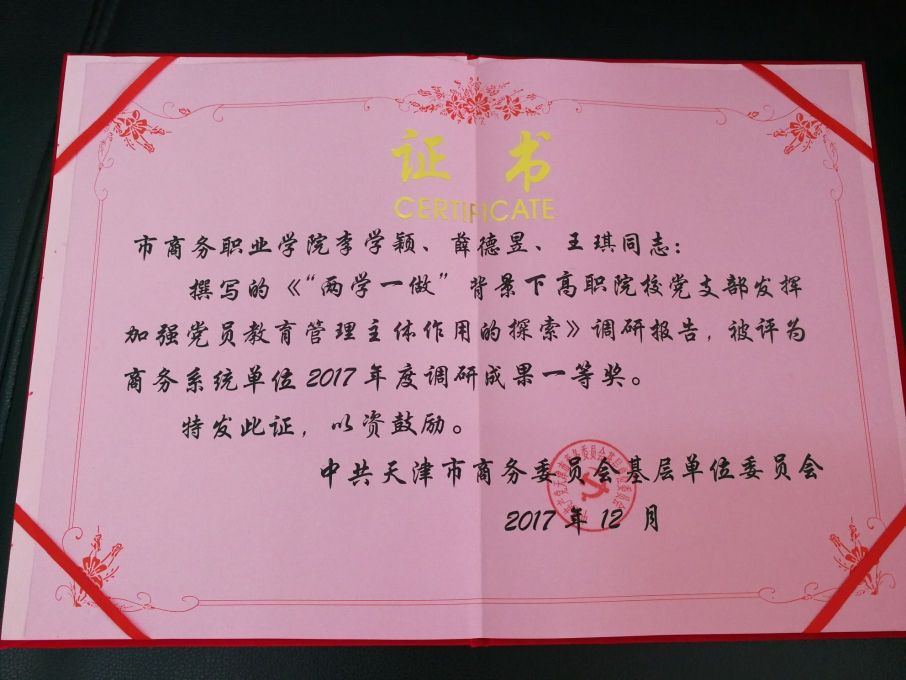 证书
CERTIFICATE
市商务职业学院李学颖、薛德昱、王琪同志：
撰写的《“两学一做”背景下高职院校党支部发挥
加强党员教育管理主体作用的探索》调研报告，被评为
商务系统单位2017年度调研成果一等奖。
特发此证，以资鼓励。
中共天津市商务委员会基层单位委员会
2017年12月